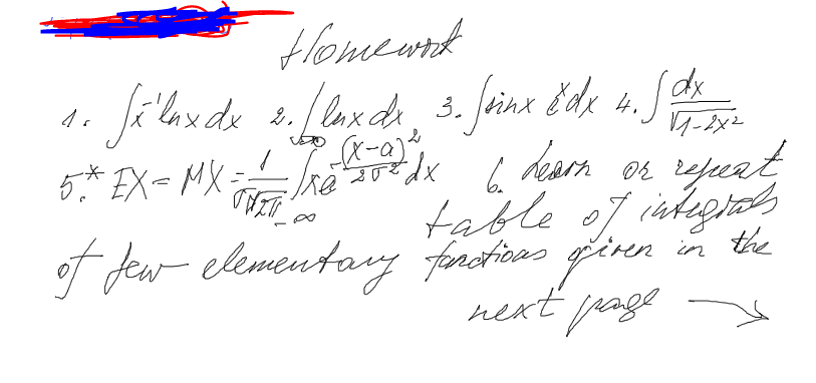 Homework
1. ∫x⁻¹lnxdx 2. ∫lnxdx 3. ∫sinx eˣdx 4. ∫dx/√(1-2x²)
5.* EX = MX = 1/(σ√2π) ∫_{-∞}^{∞} xe^{-(x-a)²/2σ²}dx 6. Learn or repeat
table of integrals
of few elementary functions given in the
next page →